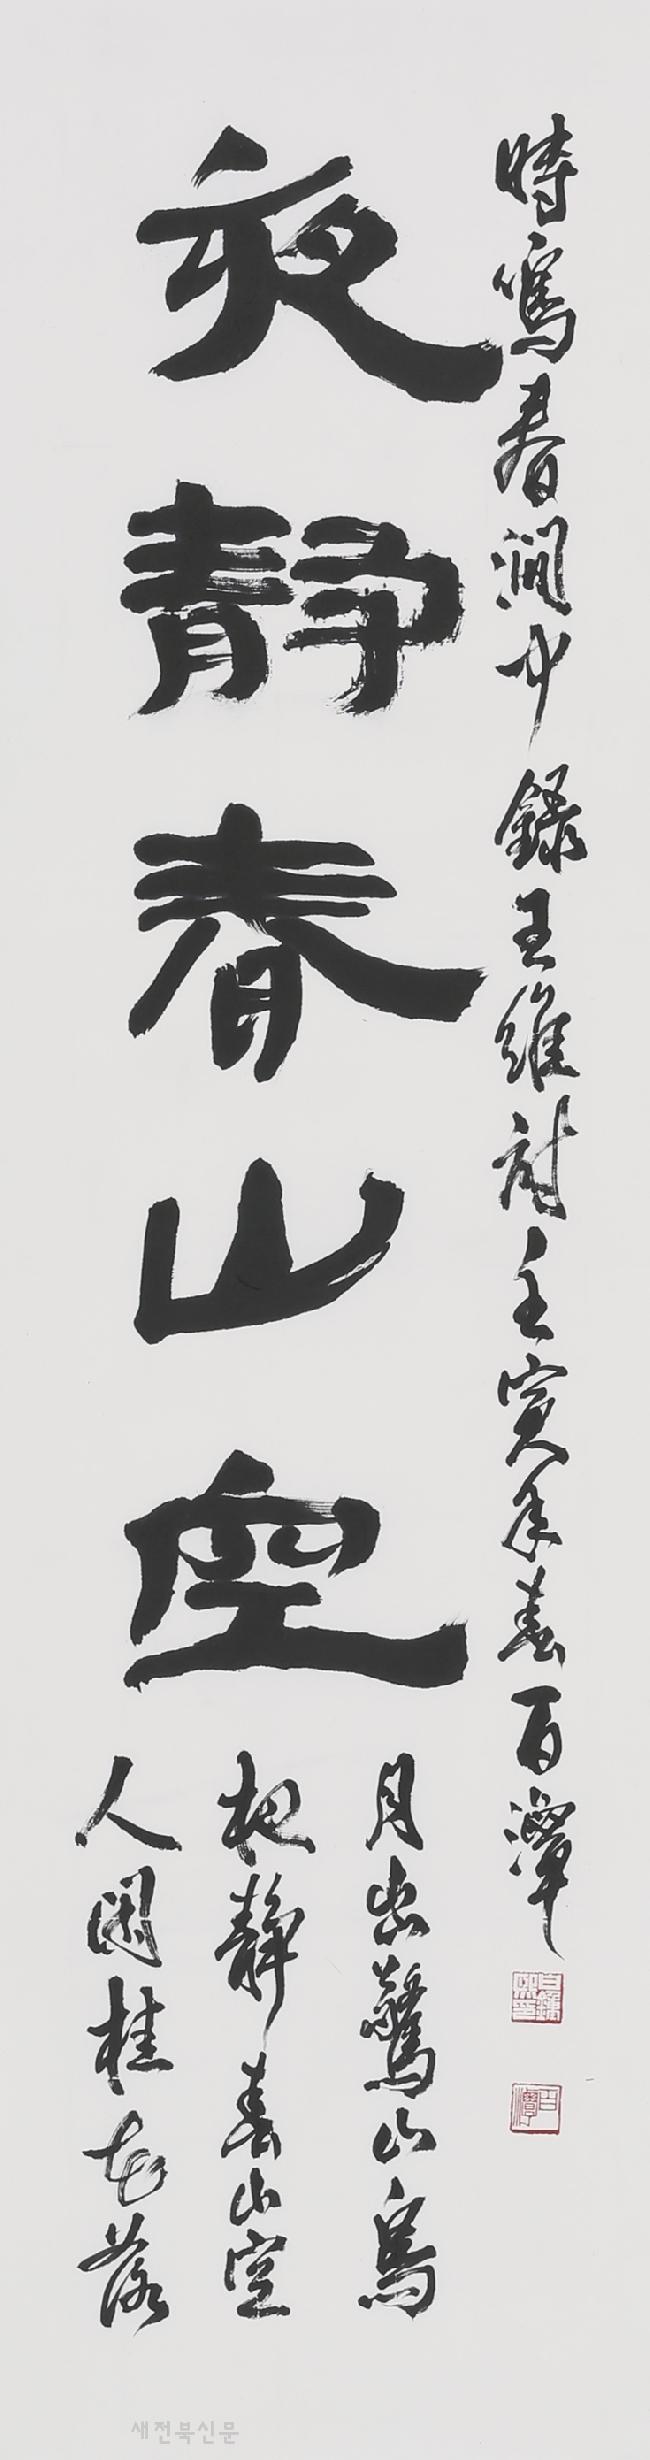 夜靜春山空
人閑桂花落
夜靜春山空
月出驚山鳥
時鳴春澗中 錄王維詩 壬寅年春 百潭
百潭
새전북신문